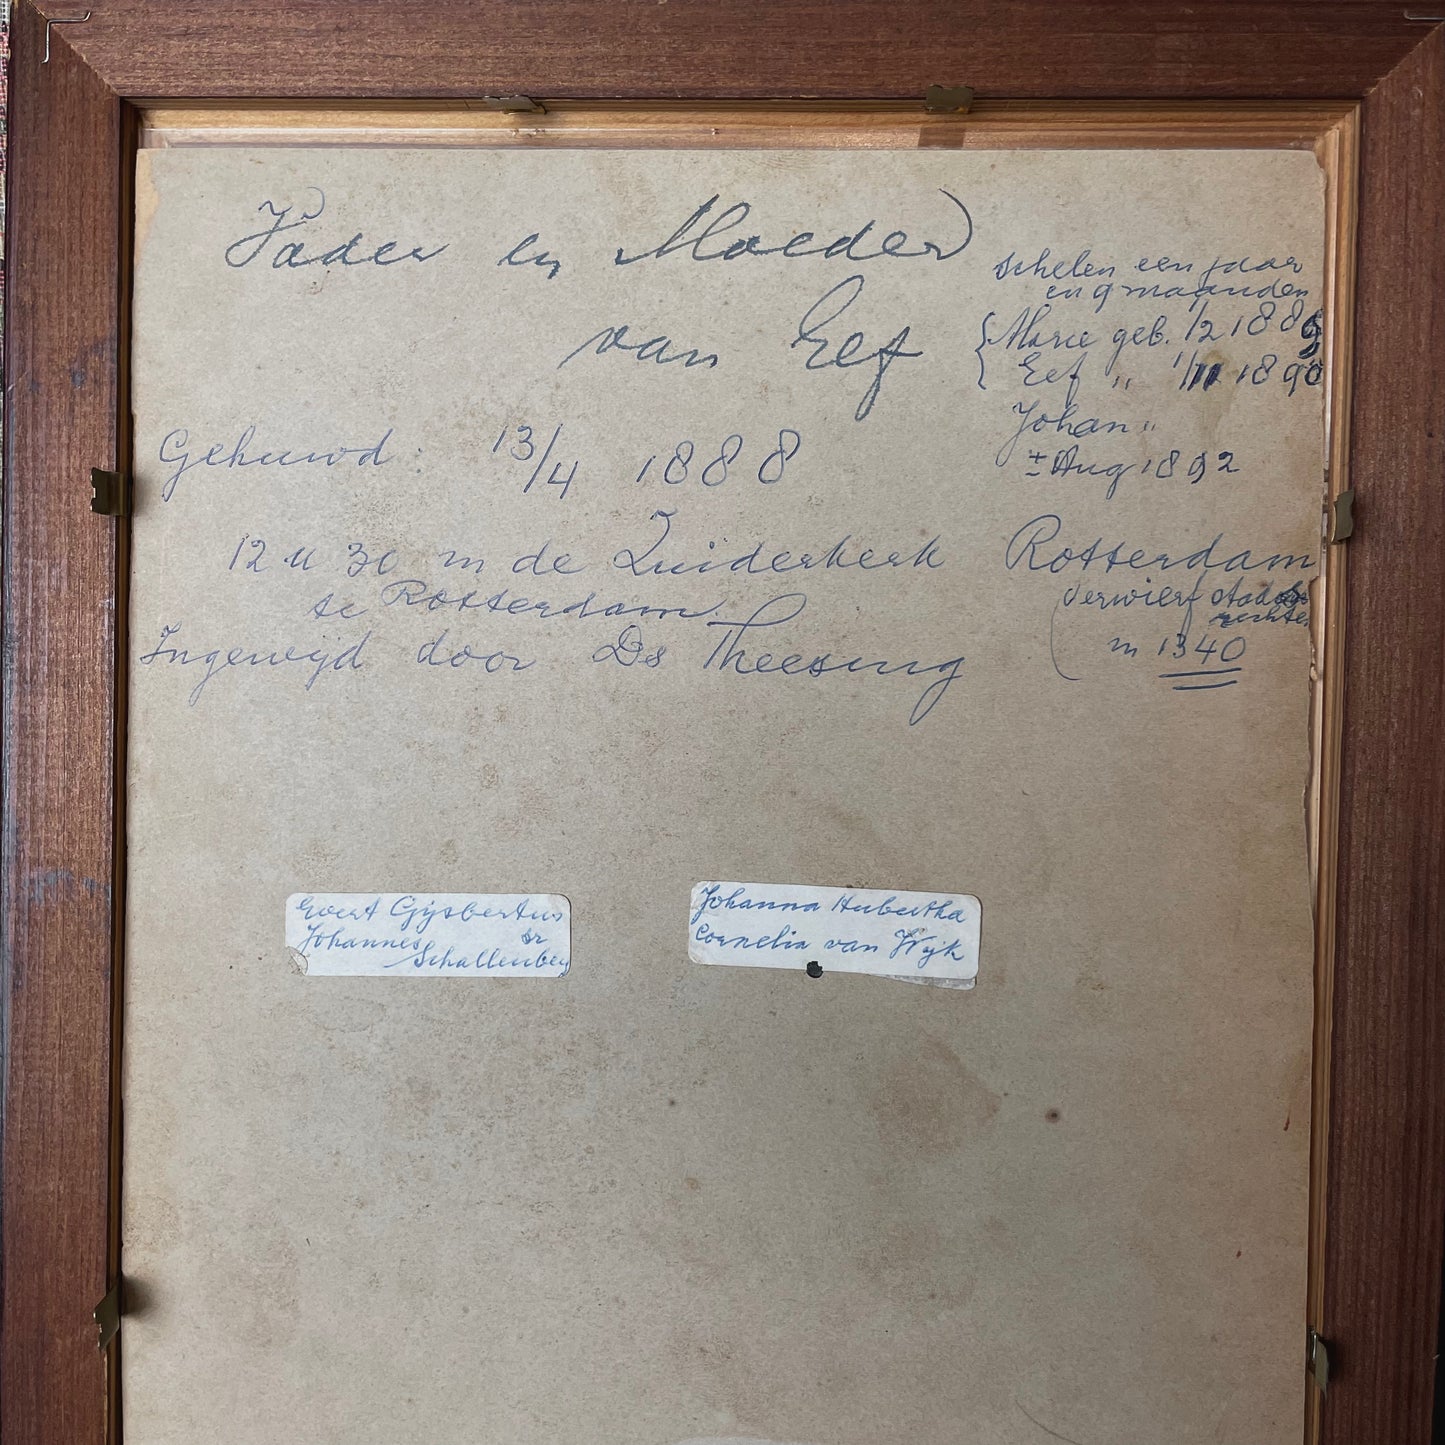 Vader en Moeder
van Eef
schelen een jaar
en 9 maanden
{ Marie geb. 1/2 1889
Eef " 1/11 1890
Johan "
± Aug 1892
Gehuwd : 13/4 1888
12 u 30 in de Zuiderkerk
te Rotterdam.
Ingewijd door Ds Theesing
Rotterdam
verwierf stads
rechten
in 1340
Evert Gijsbertus
Johannes sr
Schallenberg
Johanna Hubertha
Cornelia van Wijk